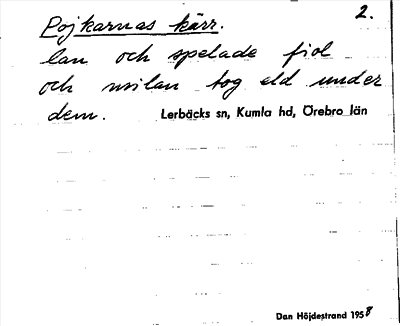 Pojkarnas kärr. 2.
lan och spelade fiol
och milan tog eld under
dem. Lerbäcks sn, Kumla hd, Örebro län
Dan Höjdestrand 1958